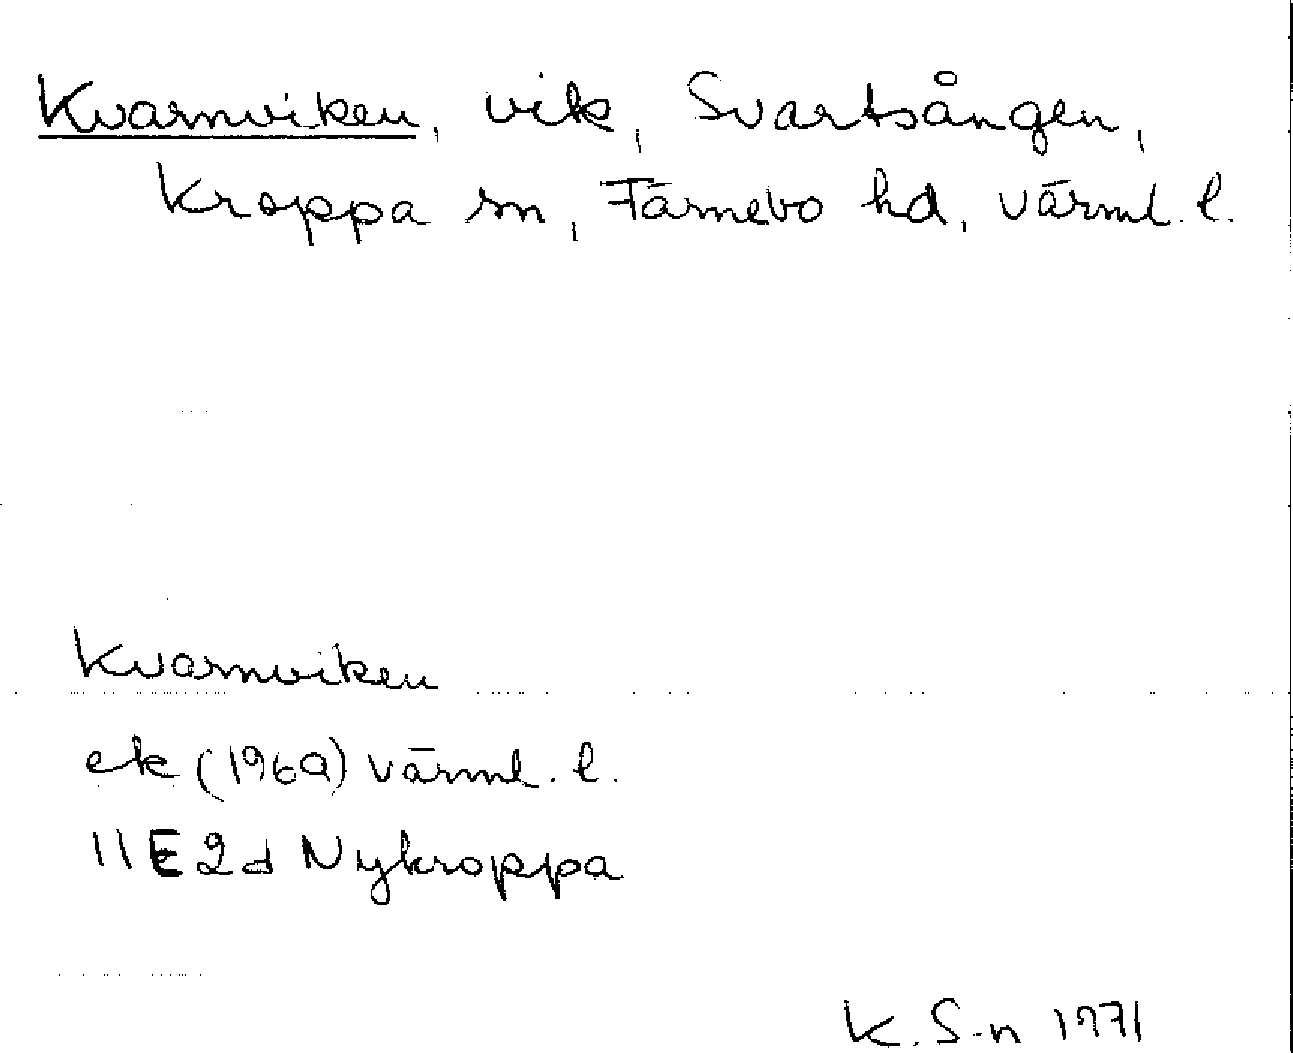 Kvarnviken, vik, Svartsången,
Kroppa sn, Färnebo hd, Värml. l.
Kvarnviken
ek (1969) Värml. l.
11E2d Nykroppa
K. S-n 1971